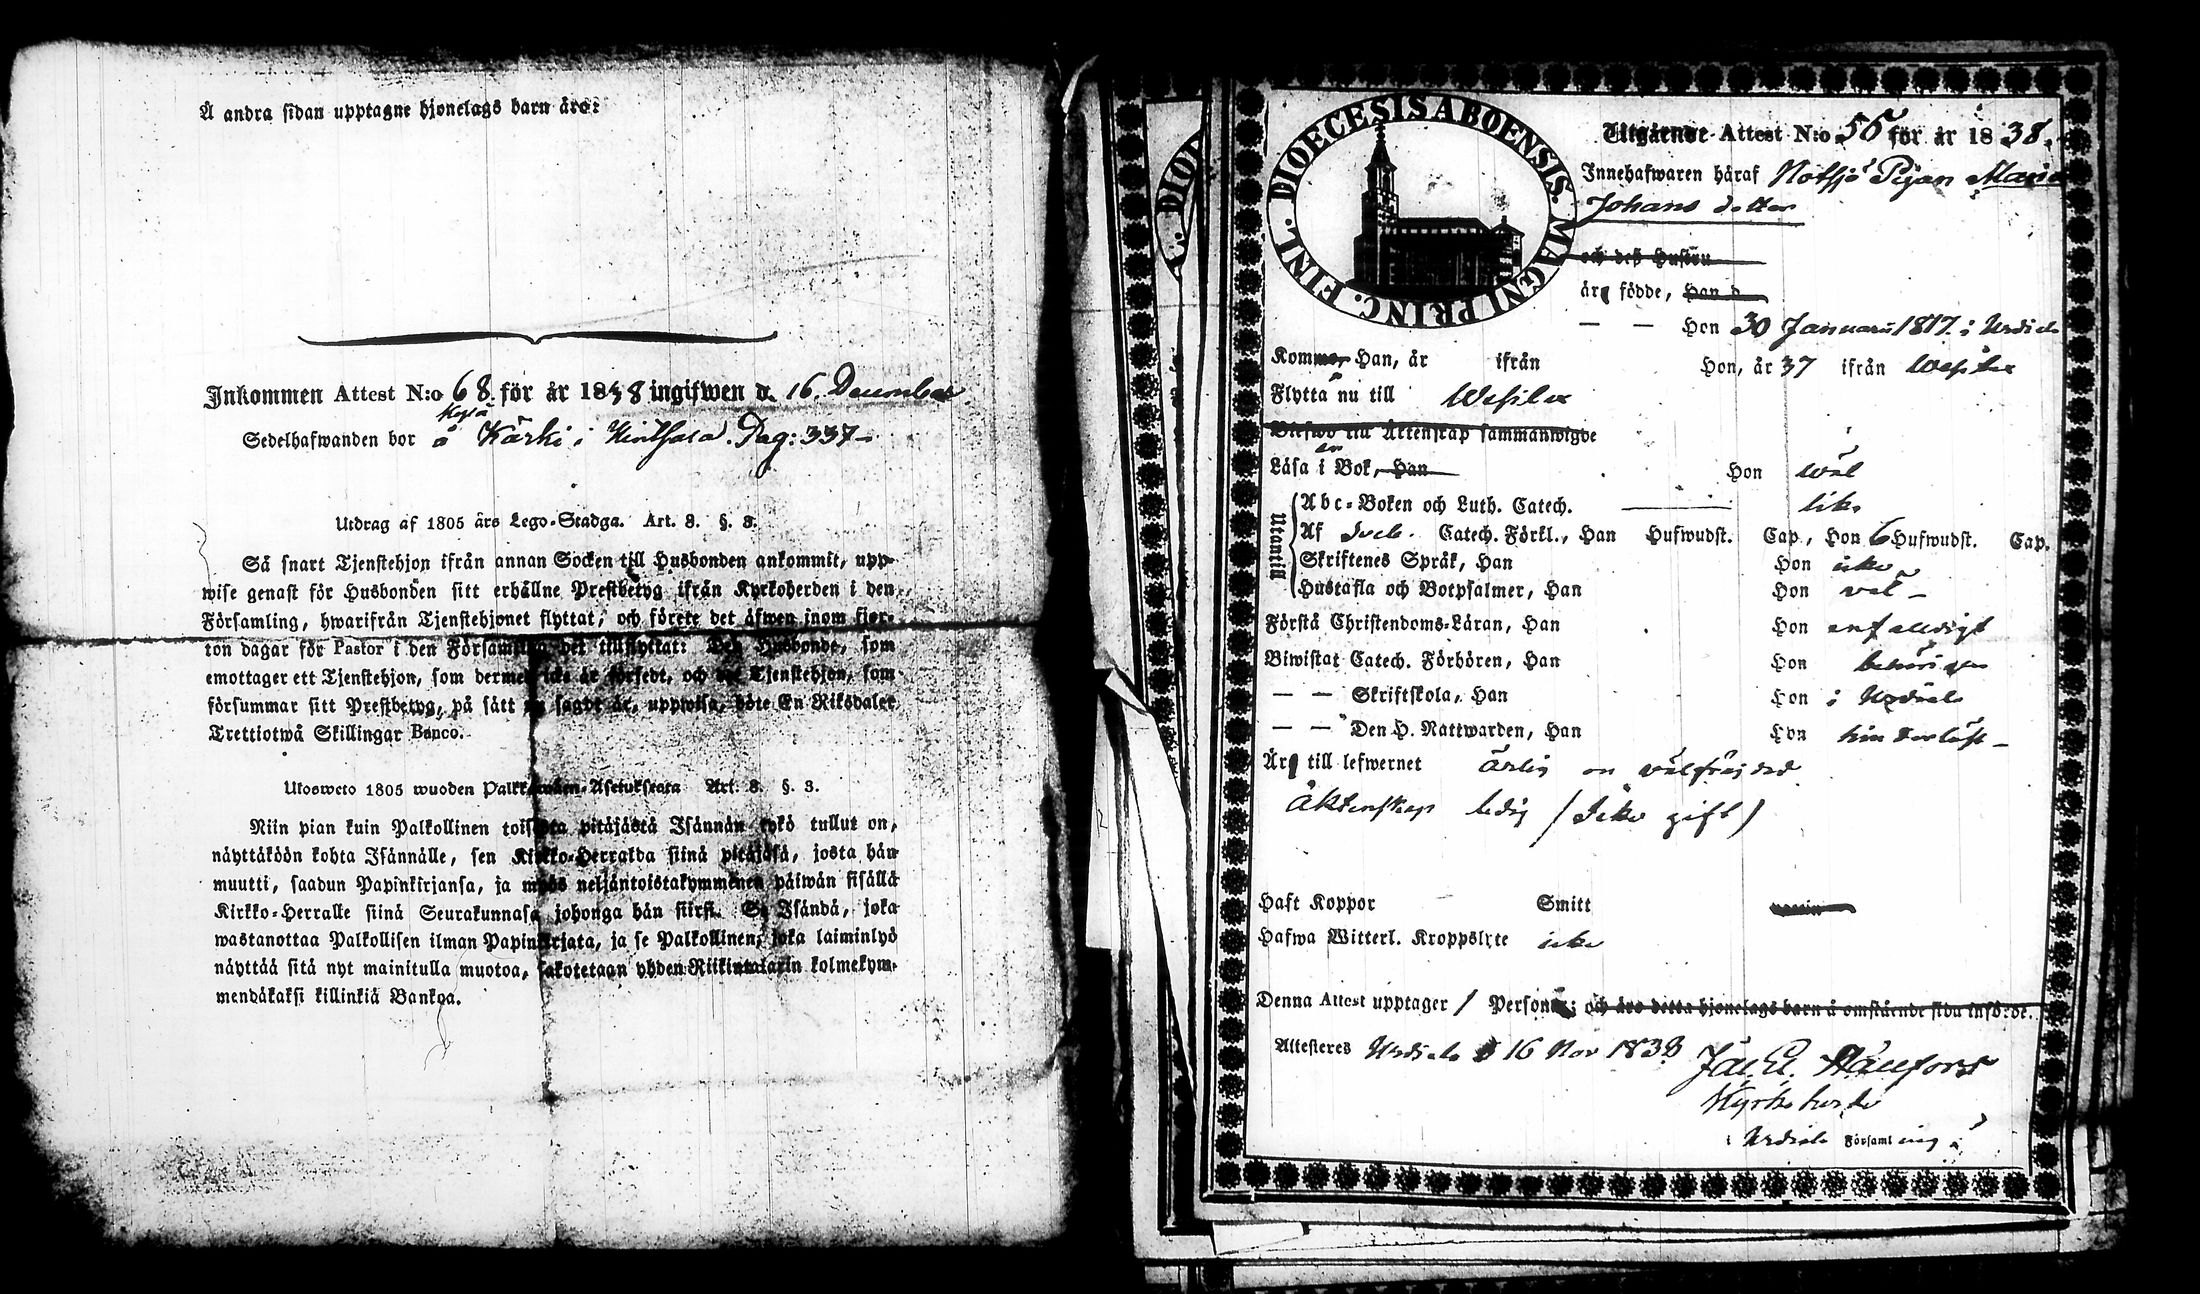 Å andra sidan upptagne hjonelags barn äro:
Inkommen Attest N:o 68 för år 1838 ingifwen d. 16. December
Sedelhafwanden bor å Kärki i Pag: 337
Utdrag af 1805 års Lego-Stadga. Art. 8. §. 3.
Så snart Tjenstehjon ifrån annan Socken till Husbonden ankommit, upp-
wise genast för Husbonden sitt erhållne Prestbetyg ifrån Kyrkoherden i den
Församling, hwarifrån Tjenstehjonet flyttat, och förete det äfwen inom fjor-
ton dagar för Pastor i den Församling det tillflyttat: Den Husbonde, som
emottager ett Tjenstehjon, som dermed icke är försedt, och det Tjenstehjon, som
försummar sitt Prestbetyg, på sätt nu sagdt är, uppwisa, böte En Riksdaler
Trettiotwå Skillingar Banco.
Utosweto 1805 wuoden Palkkawäen-Asetuksesta Art. 8. §. 3.
Niin pian kuin Palkollinen toisesta pitäjästä Isännän tykö tullut on,
näyttäköön kohta Isännälle, sen Kirkko-Herralda siinä pitäjäsä, josta hän
muutti, saadun Papinkirjansa, ja myös neljäntoistakymmenen päiwän sisällä
Kirkko-Herralle siinä Seurakunnasa johonga hän siirsi. Se Isändä, joka
wastanottaa Palkollisen ilman Papinkirjata, ja se Palkollinen, joka laiminlyö
näyttää sitä nyt mainitulla muotoa, sakotetaan yhden Riikintalarin kolmekym-
mendäkaksi killinkiä Bankoa.
DIOECESIS ABOENSIS. MAGNI PRINC. FINL.
Utgående Attest N:o 56 för år 1838.
Innehafwaren häraf Notsjö Pigan Maria
Johans dotter
och deß Hustru
äro födde, Han d.
— — Hon 30 Januari 1817 i Urdiala
Kommo, Han, år ifrån Hon, år 37 ifrån Wesilax
Flytta nu till Wesilax
Blefwo till Äktenskap sammanwigde
Läsa i Bok, Han Hon wäl
Utantill
Abc-Boken och Luth. Catech. lika
Af Sveb. Catech. Förkl., Han Hufwudst. Cap., Hon 6 Hufwudst. Cap.
Skriftenes Språk, Han Hon icke
Hustafla och Botpsalmer, Han Hon väl
Förstå Christendoms-Läran, Han Hon enfaldigt
Biwistat Catech. Förhören, Han Hon behörigen
— — Skriftskola, Han Hon i Urdiala
— — Den H. Nattwarden, Han Hon hinderlöst
Äro till lefwernet ärlig och välfräjdad
äktenskap ledig (Icke gift)
Haft Koppor Smitt
Hafwa Witterl. Kroppslyte icke
Denna Attest upptager 1 Person; och äro detta hjonelags barn å omstående sida införde.
Attesteres Urdiala d 16 Nov 1838
Kyrkoherde
i Urdiala Församling